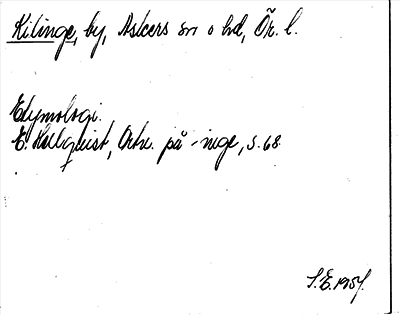 Kilinge, by, Askers sn o hd, Ör. l.
Etymologi.
E. Hellquist, Ortn. på -inge, s. 68
S.E. 1957.